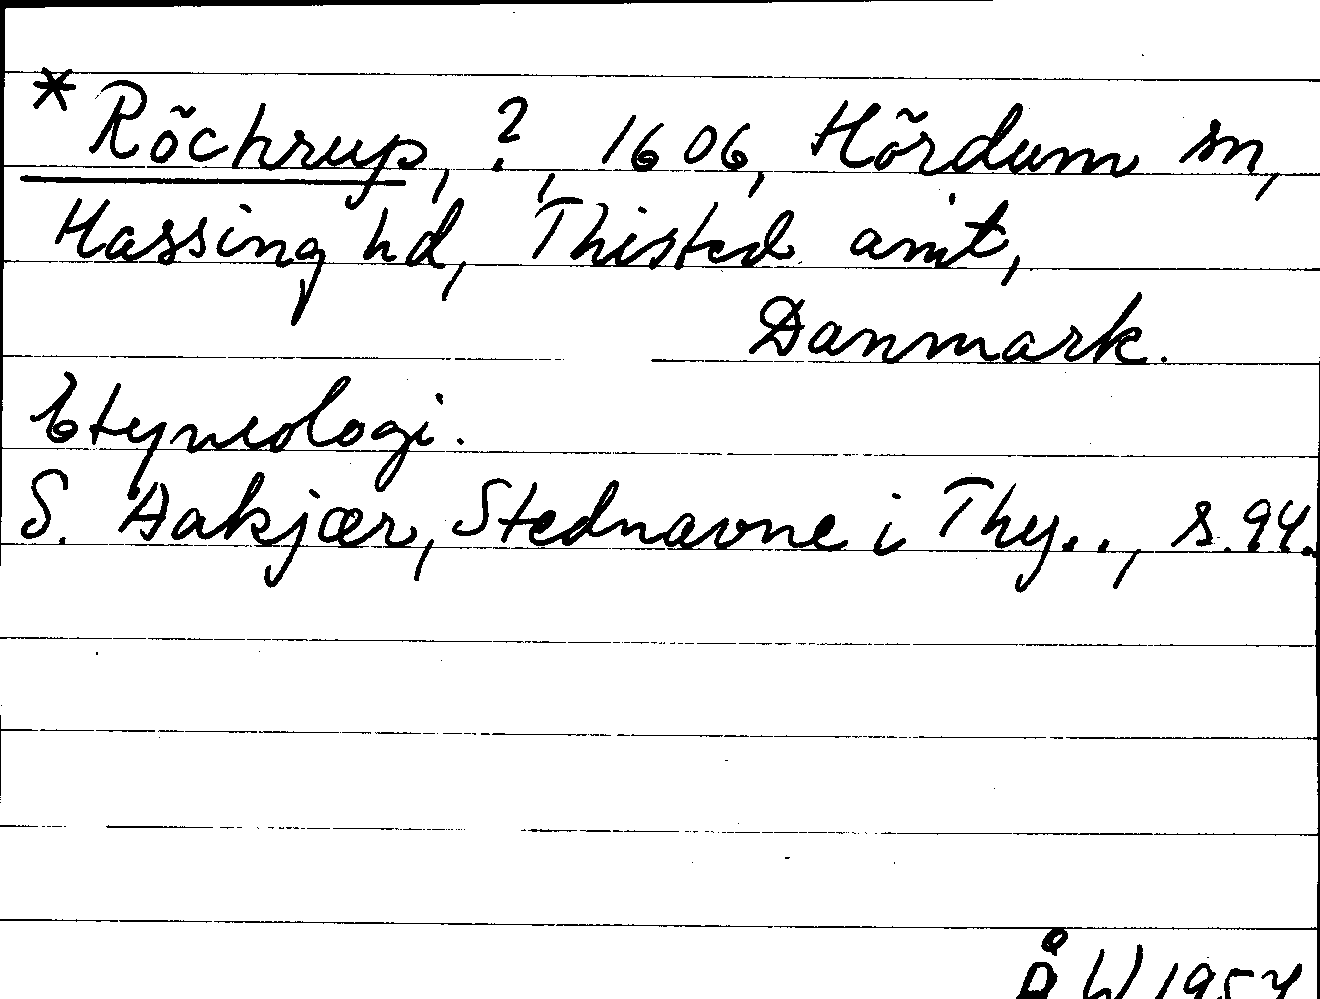 *Röchrup, ?, 1606, Hördum sn,
Hassing hd, Thisted amt,
Danmark.
Etymologi.
S. Aakjær, Stednavne i Thy.., s. 94.
ÅW 1957